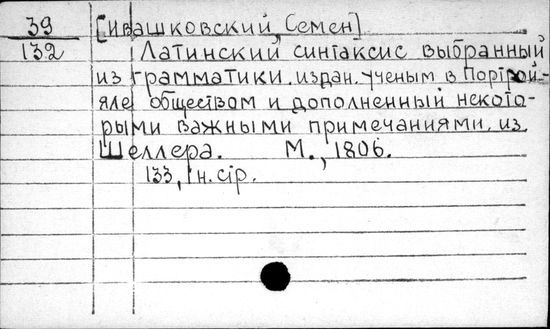 39 [Ивашковский, Семен]
132 Латинский синтаксис выбранный
из грамматики, издан. ученым в Портрой-
яле обществом и дополненный некото-
рыми важными примечаниями, из
Шеллера. М., 1806.
133, 1 н. стр.